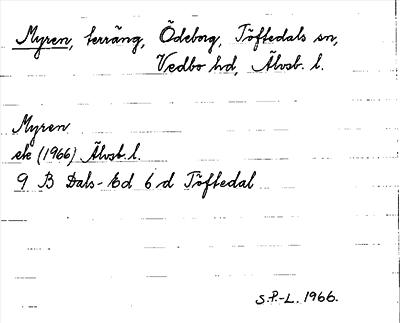 Myren, terräng, Ödeborg, Töftedals sn,
Vedbo hd, Älvsb. l.
Myren
ek (1966) Älvsb. l.
9 B Dals-Ed 6 d Töftedal
S.P.-L. 1966.